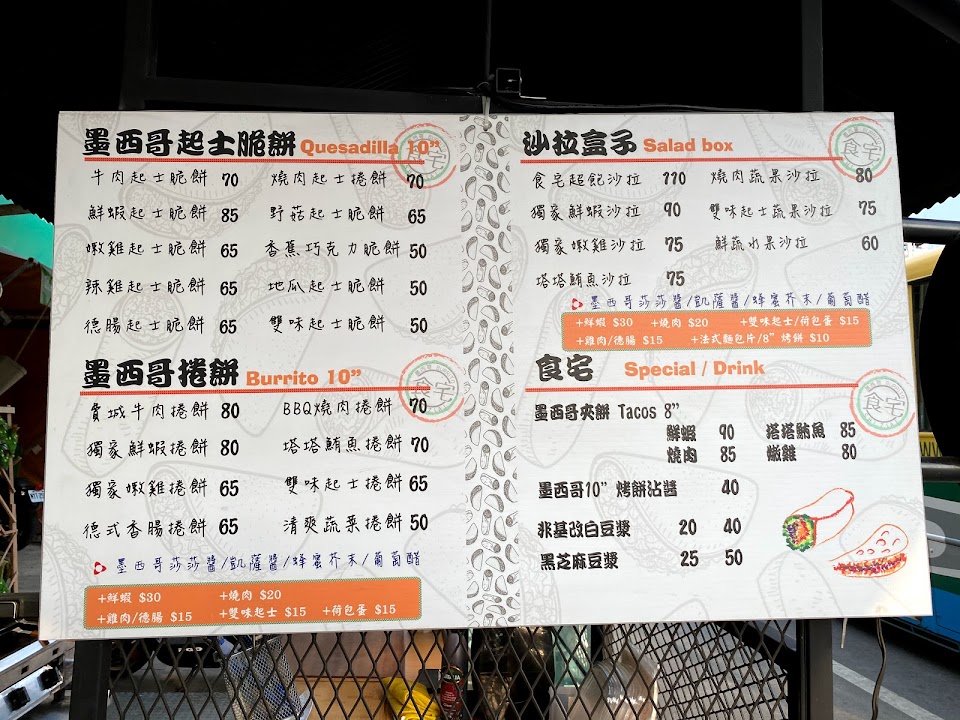 墨西哥起士脆餅 Quesadilla 10”
牛肉起士脆餅 70 燒肉起士捲餅 70
鮮蝦起士脆餅 85 野菇起士脆餅 65
嫩雞起士脆餅 65 香蕉巧克力脆餅 50
辣雞起士脆餅 65 地瓜起士脆餅 50
德腸起士脆餅 65 雙味起士脆餅 50
食宅
墨西哥捲餅 Burrito 10”
費城牛肉捲餅 80 BBQ燒肉捲餅 70
獨家鮮蝦捲餅 80 塔塔鮪魚捲餅 70
獨家嫩雞捲餅 65 雙味起士捲餅 65
德式香腸捲餅 65 清爽蔬菜捲餅 50
墨西哥莎莎醬/凱薩醬/蜂蜜芥末/葡萄醋
+鮮蝦 $30 +燒肉 $20
+雞肉/德腸 $15 +雙味起士 $15 +荷包蛋 $15
食宅
沙拉盒子 Salad box
食宅超飽沙拉 110 燒肉蔬果沙拉 80
獨家鮮蝦沙拉 90 雙味起士蔬果沙拉 75
獨家嫩雞沙拉 75 鮮蔬水果沙拉 60
塔塔鮪魚沙拉 75
墨西哥莎莎醬/凱薩醬/蜂蜜芥末/葡萄醋
+鮮蝦 $30 +燒肉 $20 +雙味起士/荷包蛋 $15
+雞肉/德腸 $15 +法式麵包片/8” 烤餅 $10
食宅
食宅 Special / Drink
墨西哥夾餅 Tacos 8”
鮮蝦 90 塔塔鮪魚 85
燒肉 85 嫩雞 80
墨西哥10” 烤餅沾醬 40
非基改白豆漿 20 40
黑芝麻豆漿 25 50
食宅